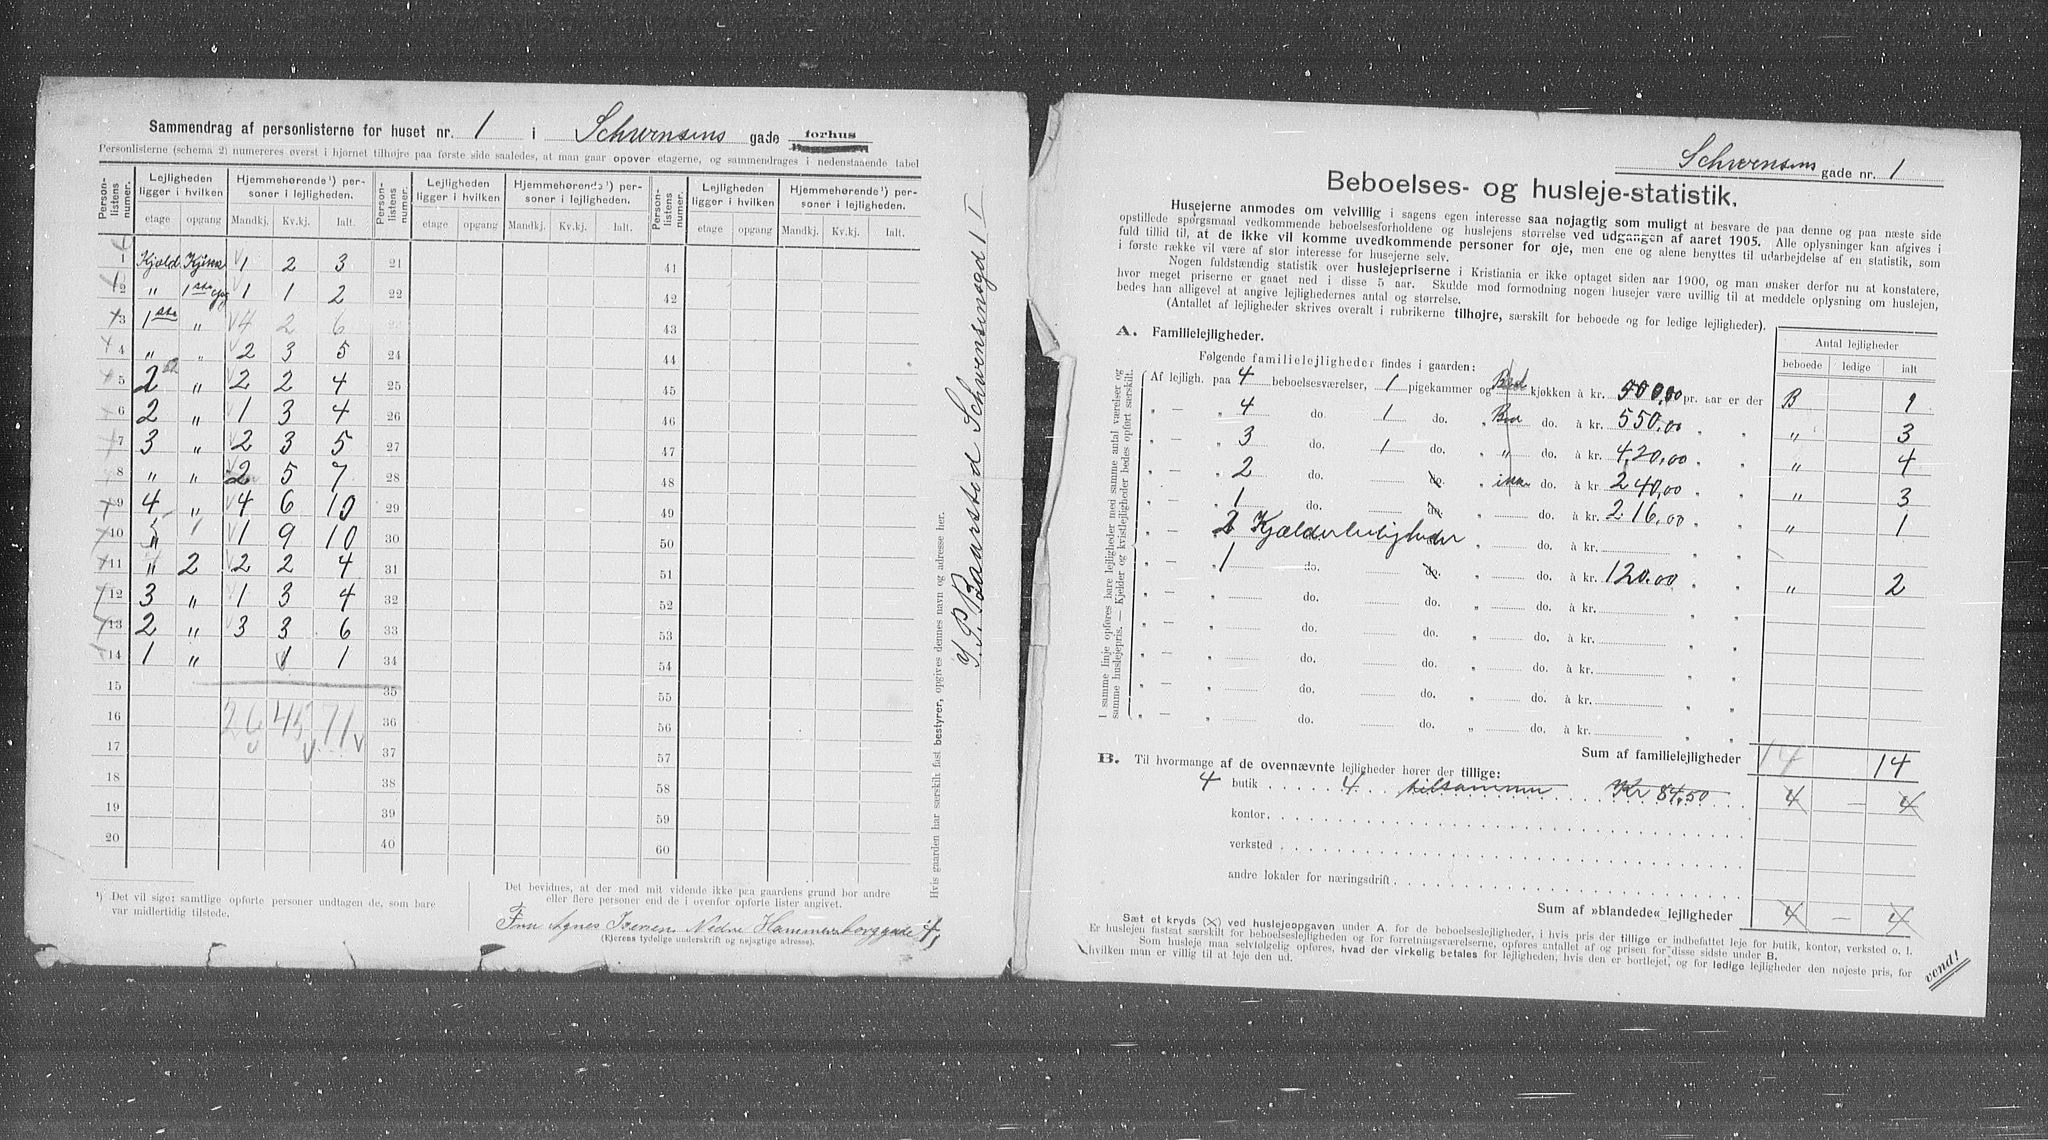 Sammendrag af personlisterne for huset nr. 1 i Schwensens gade forhus
Personlisterne (schema 2) numereres øverst i hjørnet tilhøjre paa første side saaledes, at man gaar opover etagerne, og sammendrages i nedenstaaende tabel
Person-listens numer. Lejligheden ligger i hvilken Hjemmehørende¹) personer i lejligheden. Person-listens numer. Lejligheden ligger i hvilken Hjemmehørende¹) personer i lejligheden. Person-listens numer. Lejligheden ligger i hvilken Hjemmehørende¹) personer i lejligheden.
etage opgang Mandkj. Kv.kj. Ialt. etage opgang Mandkj. Kv.kj. Ialt. etage opgang Mandkj. Kv.kj. Ialt.
1 Kjæld 1 2 3 21 41
2 " 1ste 1 1 2 22 42
3 1ste " 4 2 6 23 43
4 " " 2 3 5 24 44
5 2 " 2 2 4 25 45
6 2 " 1 3 4 26 46
7 3 " 2 3 5 27 47
8 " " 2 5 7 28 48
9 4 " 4 6 10 29 49
10 " 1 9 10 30 50
11 " 2 2 2 4 31 51
12 3 " 1 3 4 32 52
13 2 " 3 3 6 33 53
14 1 " 1 1 34 54
15 35 55
16 26 45 71 36 56
17 37 57
18 38 58
19 39 59
20 40 60
¹) Det vil sige: samtlige opførte personer undtagen de, som bare
var midlertidig tilstede.
Det bevidnes, at der med mit vidende ikke paa gaardens grund bor andre
eller flere personer end de i ovenfor opførte lister angivet.
Fru Agnes Iversen Nedre Hammersborggade 4,
(Ejerens tydelige underskrift og nøjagtige adresse).
Hvis gaarden har særskilt fast bestyrer, opgives dennes navn og adresse her.
Baarstad Schwensensgd 1 I
Schwensens gade nr. 1
Beboelses- og husleje-statistik.
Husejerne anmodes om velvillig i sagens egen interesse saa nojagtig som muligt at besvare de paa denne og paa næste side
opstillede spørgsmaal vedkommende beboelsesforholdene og huslejens størrelse ved udgangen af aaret 1905. Alle oplysninger kan afgives i
fuld tillid til, at de ikke vil komme uvedkommende personer for øje, men ene og alene benyttes til udarbejdelse af en statistik, som
i første række vil være af stor interesse for husejerne selv.
Nogen fuldstændig statistik over huslejepriserne i Kristiania er ikke optaget siden aar 1900, og man ønsker derfor nu at konstatere,
hvor meget priserne er gaaet ned i disse 5 aar. Skulde mod formodning nogen husejer være uvillig til at meddele oplysning om huslejen,
bedes han alligevel at angive lejlighedernes antal og størrelse.
(Antallet af lejligheder skrives overalt i rubrikerne tilhøjre, særskilt for beboede og for ledige lejligheder).
A. Familielejligheder.
Antal lejligheder
beboede ledige ialt
Følgende familielejligheder findes i gaarden:
I samme linje opføres bare lejligheder med samme antal værelser og
samme huslejepris. — Kjelder og kvistlejligheder bedes opført særskilt.
Af lejligh. paa 4 beboelsesværelser, 1 pigekammer og Bad kjøkken à kr. 500,00 pr. aar er der B 1
" — " 4 do. 1 do. " Bad do. à kr. 550,00 " " " 3
" — " 3 do. 1 do. " " do. à kr. 420,00 " " " 4
" — " 2 do. do. " do. à kr. 240,00 " " " 3
" — " 1 do. do. " do. à kr. 216,00 " " " 1
" — 2 Kjælderleiligheder " do. à kr. " "
" — " 1 do. do. " do. à kr. 120,00 " " " 2
" — " do. do. " do. à kr. " "
" — " do. do. " do. à kr. " "
" — " do. do. " do. à kr. " "
" — " do. do. " do. à kr. " "
" — " do. do. " do. à kr. " "
Sum af familielejligheder 14 14
B. Til hvormange af de ovennævnte lejligheder hører der tillige:
4 butik 4 tilsammen Kr 84,50 4 — 4
kontor
verksted
andre lokaler for næringsdrift
Sum af »blandede« lejligheder 4 — 4
Sæt et kryds (×) ved huslejeopgaven under A. for de beboelseslejligheder, i hvis pris der tillige er indbefattet leje for butik, kontor, verksted o. l.
Er huslejen fastsat særskilt for beboelseslejligheden og for forretningsværelserne, opføres antallet af og prisen for disse sidste under B.
Som husleje maa selvfølgelig opføres, hvad der virkelig betales for lejligheden, hvis den er bortlejet, og for ledige lejligheder den nøjeste pris, for
hvilken man er villig til at leje den ud.
vend!